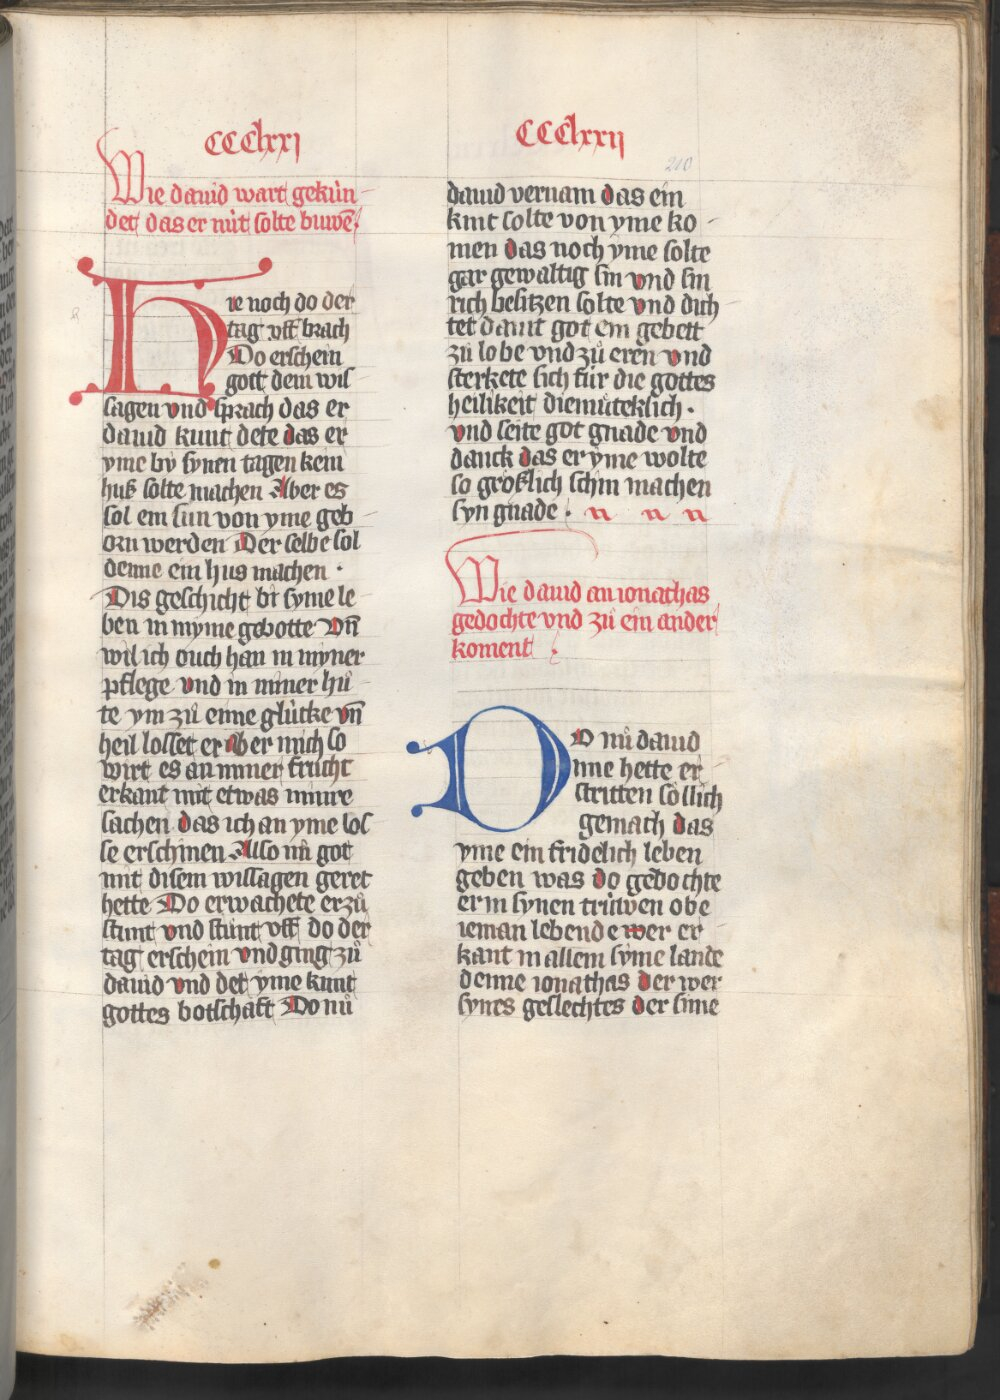 CCClxxi
Wie dauid wart gekún-
det das er nút solte buwē
Hie noch do der
tag vff brach
Do erschein
gott dem wis
sagen vnd sprach das er
dauid kunt dete das er
yme by synen tagen kein
huß solte machen Aber es
sol ein sun von yme geb
orn werden Der selbe sol
denne ein hus machen ·
Dis geschicht bi syme le
ben in myme gebotte Vn̄
wil ich ouch han in myner
pflege vnd in miner hů
te ym zů eime glúcke vn̄
heil losset er aber mich so
wirt es an miner frucht
erkant mit etwas minre
sachen das ich an yme los
se erschinen Also nů got
mit disem wissagen geret
hette Do erwachete er zů
stunt vnd stůnt vff do der
tag erschein vnd ging zů
dauid vnd det yme kunt
gottes botschaft Do nů
CCClxxii
210
dauid vernam das ein
kint solte von yme ko-
men das noch yme solte
gar gewaltig sin vnd sin
rich besitzen solte vnd dich
tet dauit got ein gebett
zů lobe vnd zů eren vnd
sterkete sich für die gottes
heilikeit diemůteklich ·
vnd seite got gnade vnd
danck das er yme wolte
so gröslich schin machen
syn gnade · n n n
Wie dauid an ionathas
gedochte vnd zů ein ander
koment
DO nů dauid
ime hette er
stritten söllich
gemach das
yme ein fridelich leben
geben was do gedochte
er in synen trúwen obe
ieman lebende wer er
kant in allem syme lande
denne ionathas der wer
synes geslechtes der sine